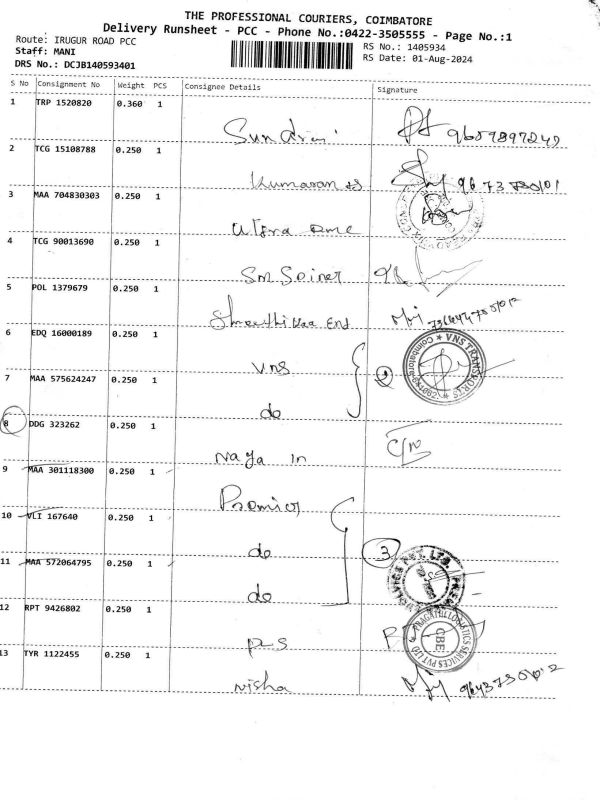 THE PROFESSIONAL COURIERS, COIMBATORE
Delivery Runsheet - PCC - Phone No.:0422-3505555 - Page No.:1
Route: IRUGUR ROAD PCC
RS No.: 1405934
Staff: MANI
RS Date: 01-Aug-2024
DRS No.: DCJB140593401
S No Consignment No Weight PCS Consignee Details Signature
1 TRP 1520820 0.360 1
2 TCG 15108788 0.250 1
Kumaran
3 MAA 704830303 0.250 1
4 TCG 90013690 0.250 1
5 POL 1379679 0.250 1
6 EDQ 16000189 0.250 1
VNS
VNS TRANSPORTS
Coimbatore
7 MAA 575624247 0.250 1
do
8 DDG 323262 0.250 1
Naya in
9 MAA 301118300 0.250 1
Premier
10 VLI 167640 0.250 1
do
3
11 MAA 572064795 0.250 1
do
12 RPT 9426802 0.250 1
PS
PRAGATHI LOGISTICS SERVICES PVT LTD
CBE
13 TYR 1122455 0.250 1
Nisha